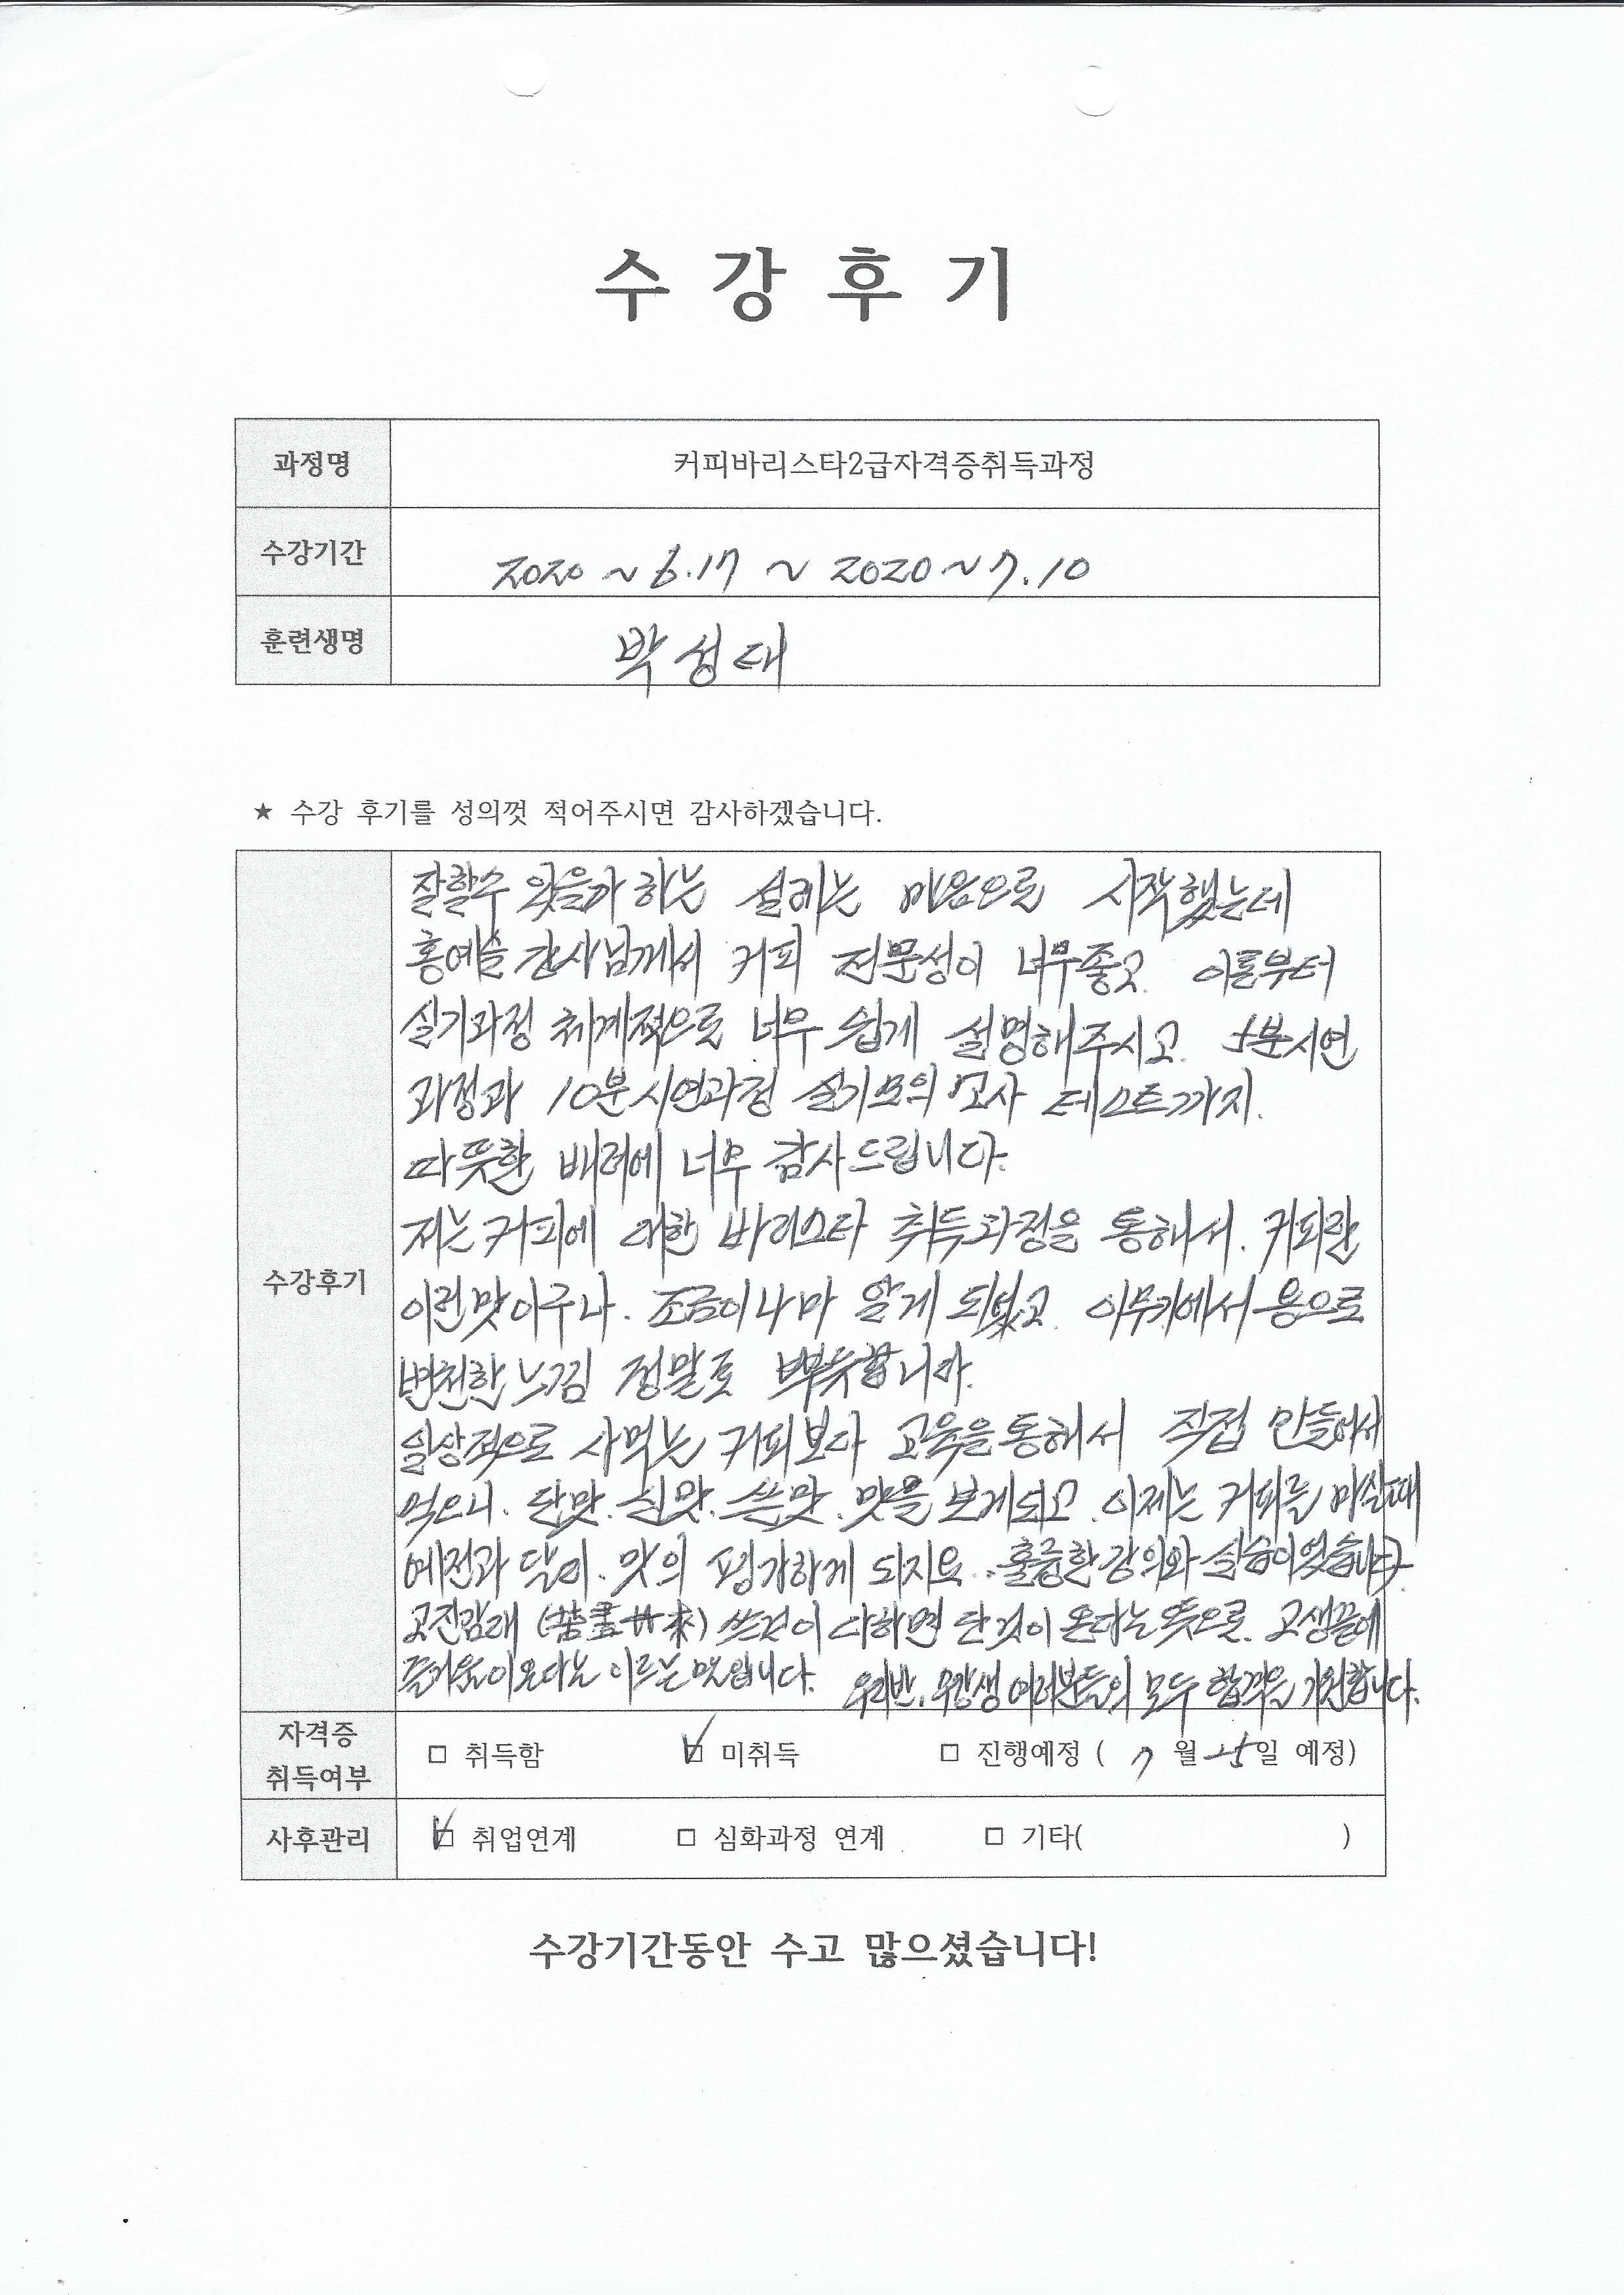 수 강 후 기
과정명 커피바리스타2급자격증취득과정
수강기간 2020 ~ 6.17 ~ 2020 ~ 7.10
훈련생명 박성대
★ 수강 후기를 성의껏 적어주시면 감사하겠습니다.
수강후기
잘할수 있을까 하는 설레는 마음으로 시작했는데
홍예슬 강사님께서 커피 전문성이 너무좋고. 이론부터
실기과정 체계적으로 너무 쉽게 설명해주시고. 5분시연
과정과 10분시연과정 실기모의 고사 테스트까지.
따뜻한 배려에 너무 감사드립니다.
저는 커피에 대한 바리스타 취득과정을 통해서. 커피란
이런맛이구나. 조금이나마 알게 되었고. 이무기에서 용으로
변천한 느낌 정말로 뿌듯합니다.
일상적으로 사먹는 커피보다 교육을통해서 직접 만들어서
먹으니. 단맛. 신맛. 쓴맛. 맛을 보게되고. 이제는 커피를 마실때
예전과 달이. 맛의 평가하게 되지요. 훌륭한 강의와 실습이었습니다.
고진감래 (苦盡甘來) 쓴것이 다하면 단것이 온다는 뜻으로. 고생끝에
즐거움이 온다는 이르는 말입니다. 우리반. 수강생 여러분들의 모두 합격을 기원합니다.
자격증 취득여부 □ 취득함 ☑ 미취득 □ 진행예정 ( 7 월 25일 예정)
사후관리 ☑ 취업연계 □ 심화과정 연계 □ 기타( )
수강기간동안 수고 많으셨습니다!